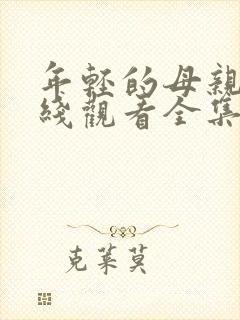 年轻的母親
綫觀看全集
克莱莫